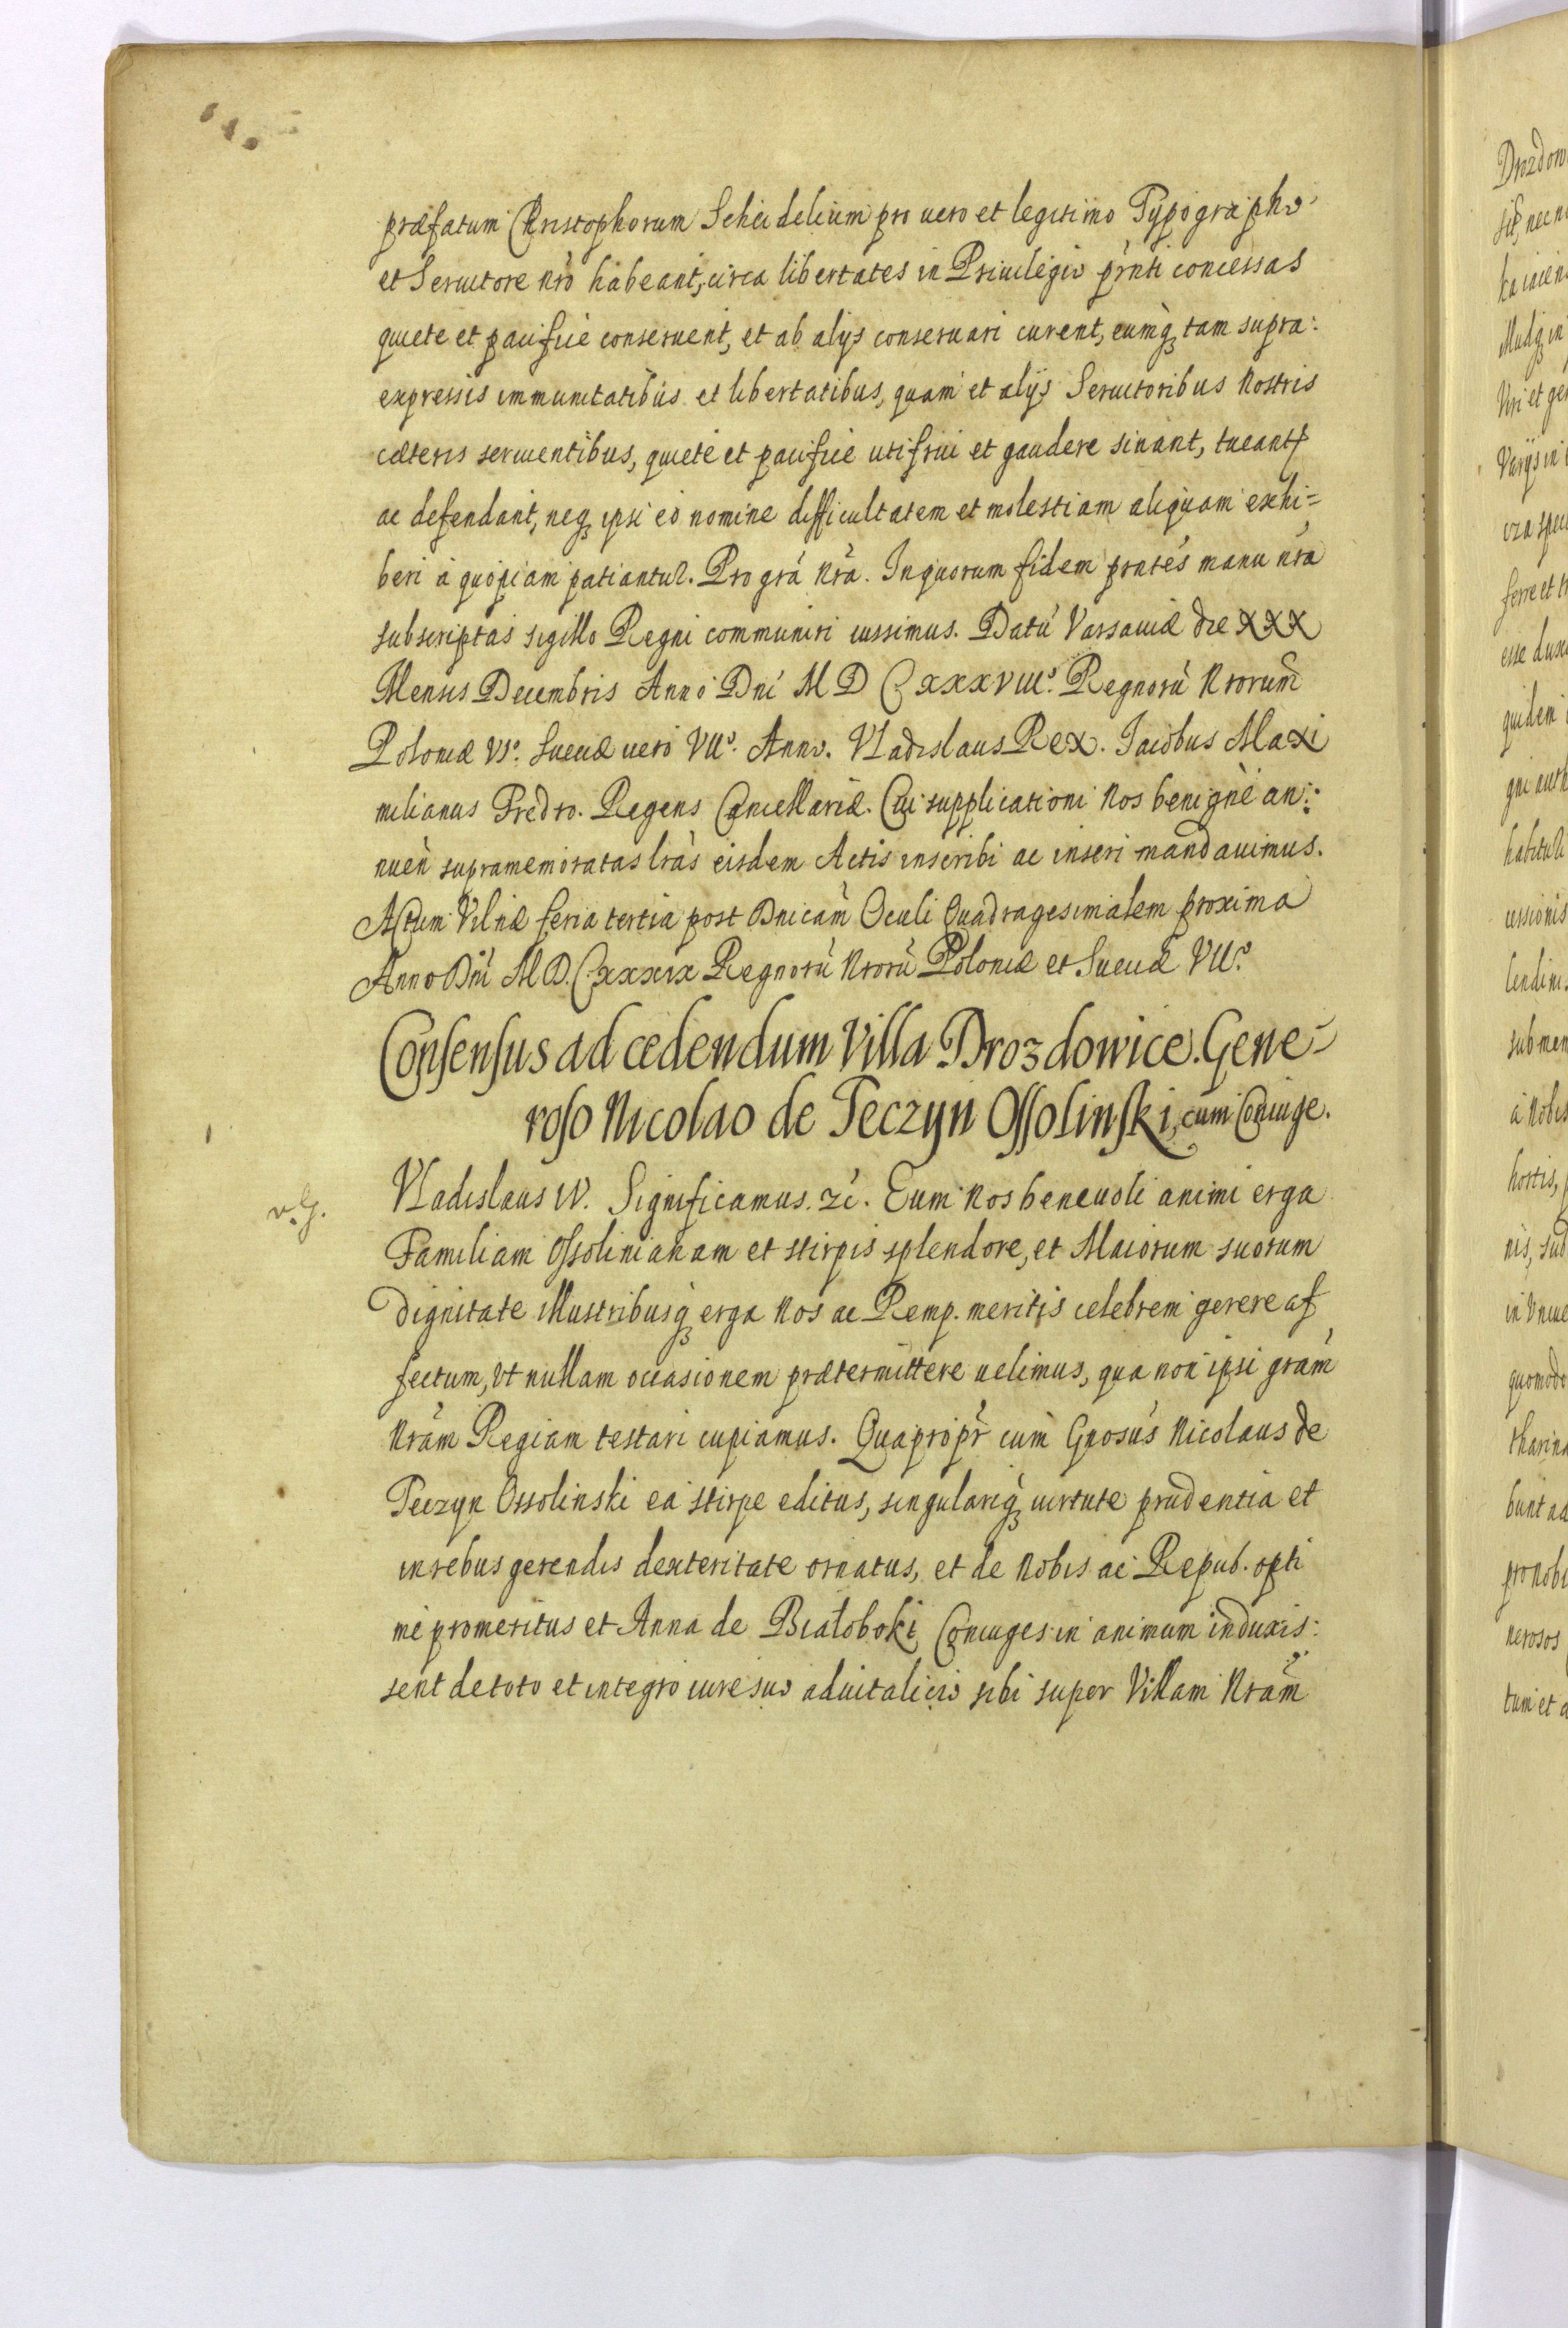 præfatum Christophorum Scheidelium pro uero et legitimo Typographo
et Seruitore nrõ habeant, circa libertates in Priuilegio prnti concessas
quiete et pacificè conseruent, et ab alijs conseruari curent, eumq3 tam supra:
expressis immunitatibus et libertatibus, quam et alijs Seruitoribus Nostris
cæteris seruientibus, quietè et pacificè uti frui et gaudere sinant, tueantq3
ac defendant, neq3 ipsi eò nomine difficultatem et molestiam aliquam exhi=
beri à quopiam patiantur. Pro grã Nrã. In quorum fidem prntes manu nrã
subscriptas sigillo Regni communiri iussimus. Datũ Varsauiæ die XXX
Mensis Decembris Anno Dni M D CXXXVIIIº. Regnorũ Nrorum
Poloniæ VIº. Sueciæ uero VIIº. Anno. Vladislaus Rex. Jacobus Maxi
milianus Fredro. Regens Cancellariæ. Cui supplicationi Nos benignè an:
nuen supramemoratas lras eisdem Actis inscribi ac inseri mandauimus.
Actum Vilnæ feria tertia post Dnicam Oculi Quadragesimalem proxima
Anno Dni M.D.CXXXIX Regnorũ Nrorũ Poloniæ et Sueciæ VIIº.
Consensus ad cedendum Villa Drozdowice. Gene-
roso Nicolao de Teczyn Ossolinski, cum Coniuge.
v.G.
Vladislaus IV. Significamus. zc. Eum Nos beneuoli animi erga
Familiam Ossolinianam et stirpis splendore, et Maiorum suorum
dignitate illustribusq3 erga Nos ac Remp. meritis celebrem gerere af
fectum, ut nullam occasionem prætermittere uelimus, qua non ipsi gram
Nram Regiam testari cupiamus. Quapropr cum Gnosus Nicolaus de
Teczyn Ossolinski ea stirpe editus, singulariq3 uirtute prudentia et
in rebus gerendis dexteritate ornatus, et de Nobis ac Repub. opti
mè promeritus et Anna de Białoboki Coniuges in animum induxis:
sent de toto et integro iure suo aduitalicio sibi super Villam Nram